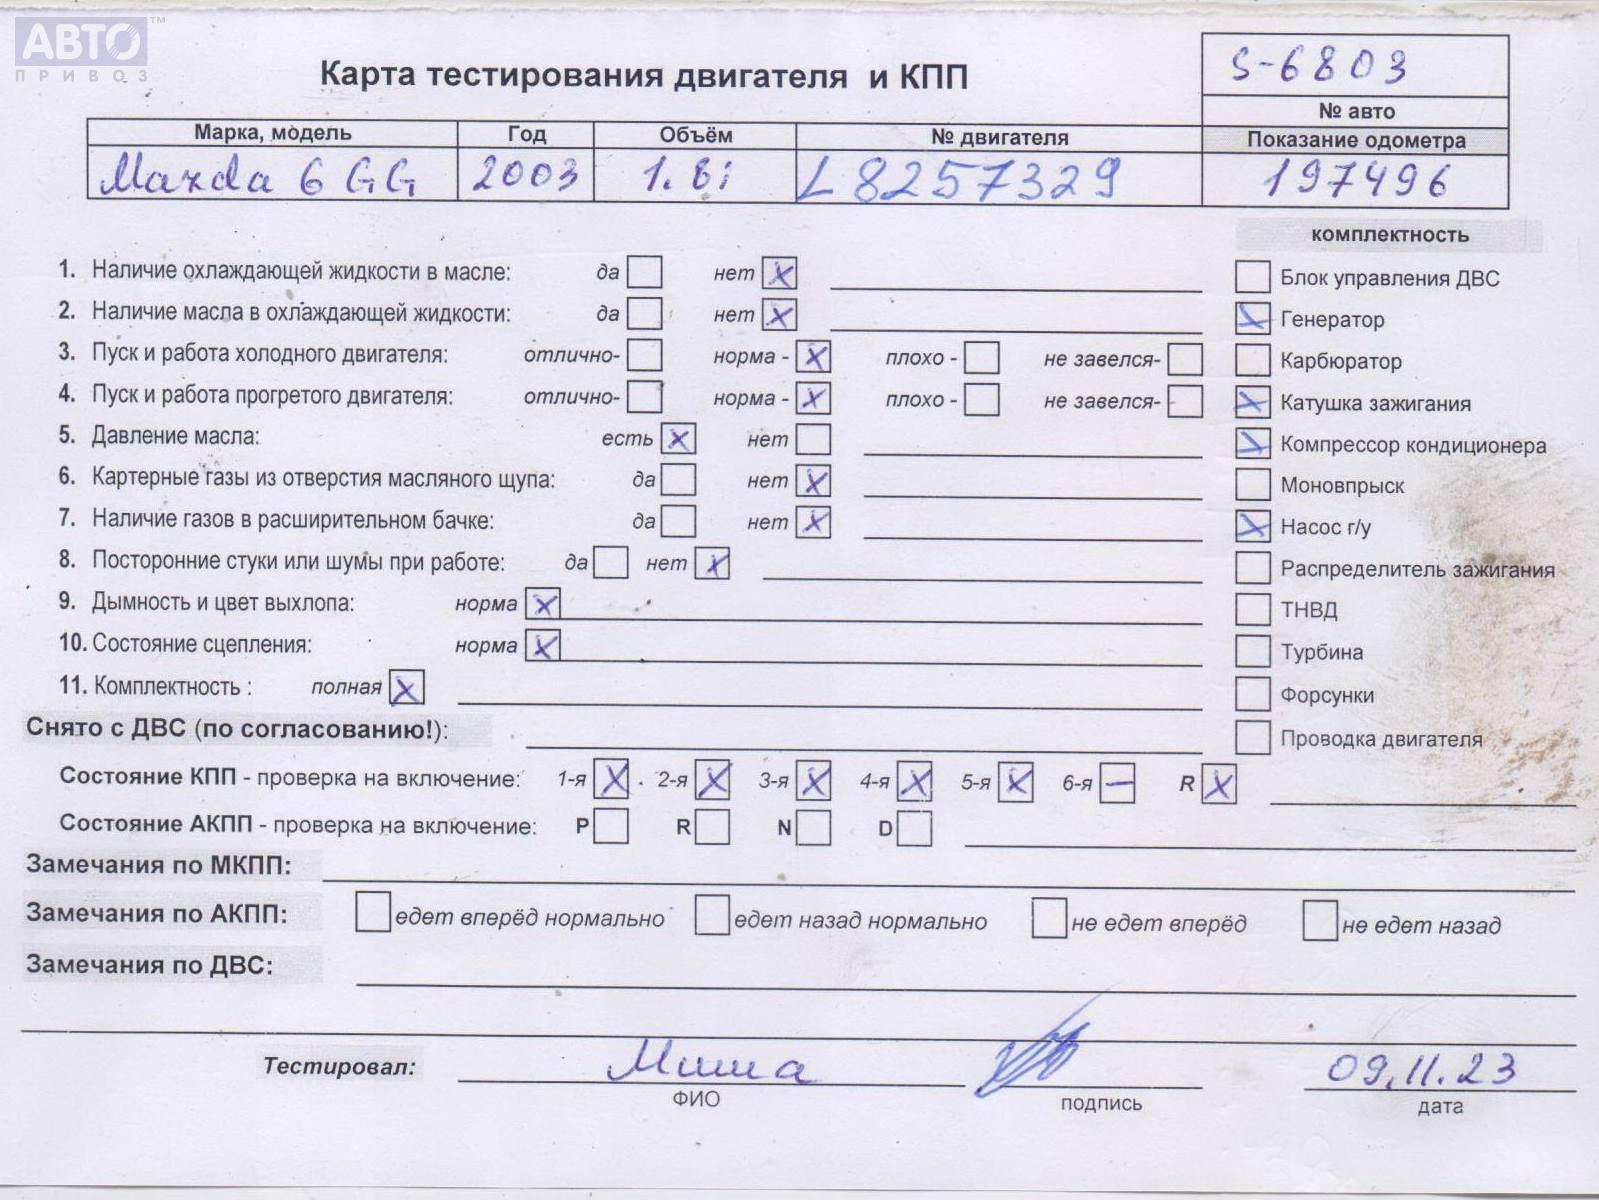 АВТО™
ПРИВОЗ
Карта тестирования двигателя и КПП
S-6803
№ авто
Марка, модель Год Объём № двигателя Показание одометра
Mazda 6 GG 2003 1.8i L8257329 197496
комплектность
1. Наличие охлаждающей жидкости в масле: да нет X
Блок управления ДВС
2. Наличие масла в охлаждающей жидкости: да нет X
Генератор X
3. Пуск и работа холодного двигателя: отлично- норма - X плохо - не завелся-
Карбюратор
4. Пуск и работа прогретого двигателя: отлично- норма - X плохо - не завелся-
Катушка зажигания X
5. Давление масла: есть X нет
Компрессор кондиционера X
6. Картерные газы из отверстия масляного щупа: да нет X
Моновпрыск
7. Наличие газов в расширительном бачке: да нет X
Насос г/у X
8. Посторонние стуки или шумы при работе: да нет X
Распределитель зажигания
9. Дымность и цвет выхлопа: норма X
ТНВД
10. Состояние сцепления: норма X
Турбина
11. Комплектность : полная X
Форсунки
Снято с ДВС (по согласованию!):
Проводка двигателя
Состояние КПП - проверка на включение: 1-я X 2-я X 3-я X 4-я X 5-я X 6-я – R X
Состояние АКПП - проверка на включение: P R N D
Замечания по МКПП:
Замечания по АКПП: едет вперёд нормально едет назад нормально не едет вперёд не едет назад
Замечания по ДВС:
Тестировал: Миша 09.11.23
ФИО подпись дата